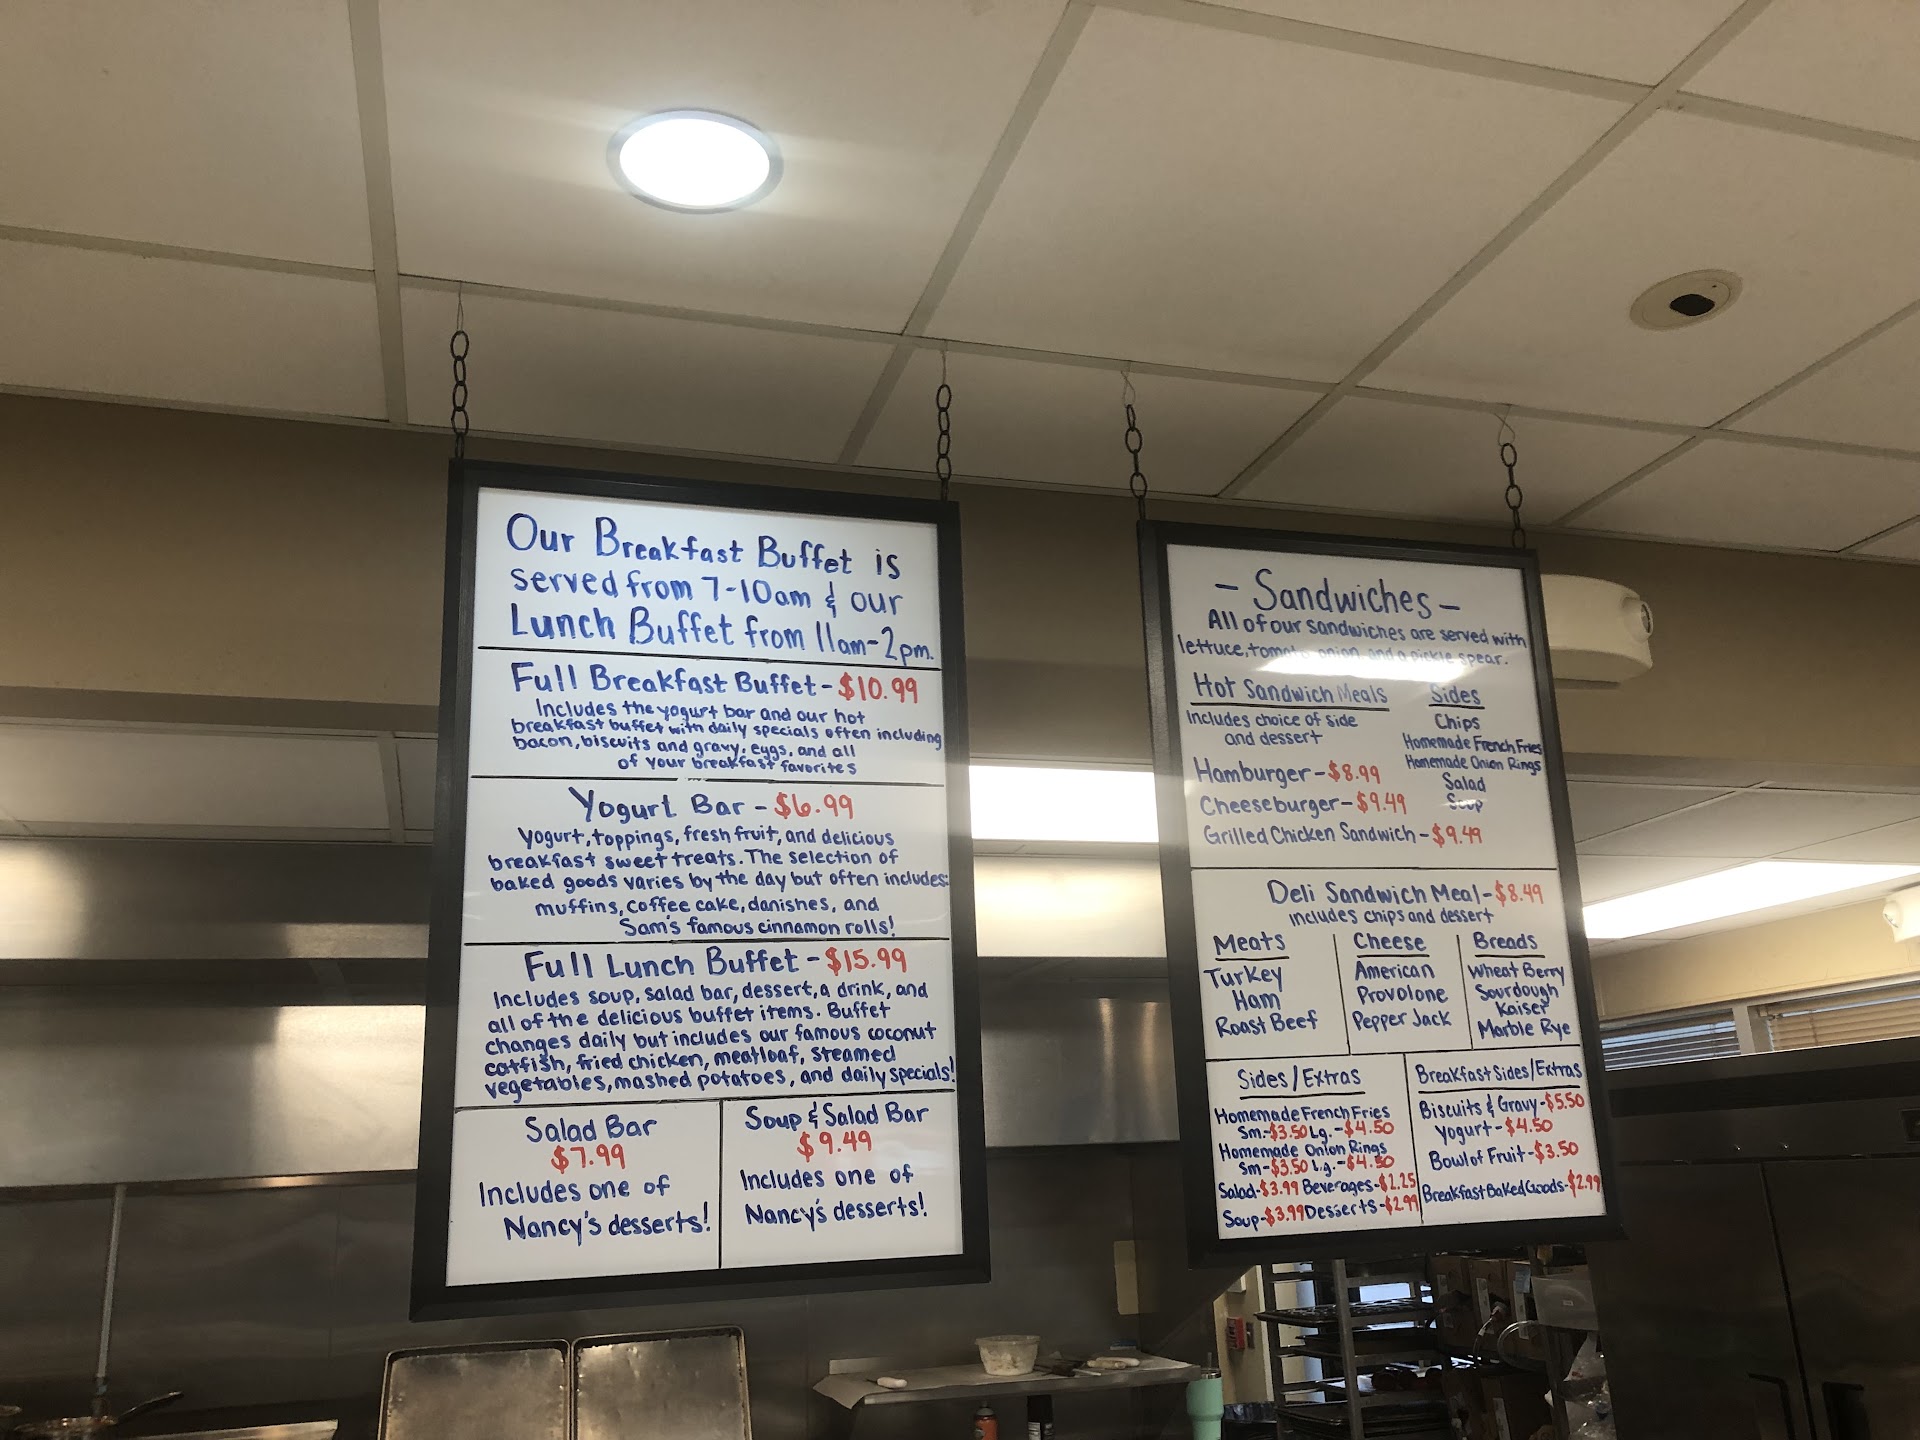 Our Breakfast Buffet is
served from 7-10am & our
Lunch Buffet from 11am-2pm.
Full Breakfast Buffet - $10.99
Includes the yogurt bar and our hot
breakfast buffet with daily specials often including
bacon, biscuits and gravy, eggs, and all
of your breakfast favorites
Yogurt Bar - $6.99
Yogurt, toppings, fresh fruit, and delicious
breakfast sweet treats. The selection of
baked goods varies by the day but often includes:
muffins, coffee cake, danishes, and
Sam's famous cinnamon rolls!
Full Lunch Buffet - $15.99
Includes soup, salad bar, dessert, a drink, and
all of the delicious buffet items. Buffet
changes daily but includes our famous coconut
catfish, fried chicken, meatloaf, steamed
vegetables, mashed potatoes, and daily specials!
Salad Bar
$7.99
Includes one of
Nancy's desserts!
Soup & Salad Bar
$9.49
Includes one of
Nancy's desserts!
- Sandwiches -
All of our sandwiches are served with
lettuce, tomato, onion, and a pickle spear.
Hot Sandwich Meals
Includes choice of side
and dessert
Hamburger - $8.99
Cheeseburger - $9.49
Grilled Chicken Sandwich - $9.49
Sides
Chips
Homemade French Fries
Homemade Onion Rings
Salad
Soup
Deli Sandwich Meal - $8.49
includes chips and dessert
Meats
Turkey
Ham
Roast Beef
Cheese
American
Provolone
Pepper Jack
Breads
Wheat Berry
Sourdough
Kaiser
Marble Rye
Sides/Extras
Homemade French Fries
Sm.-$3.50 Lg.-$4.50
Homemade Onion Rings
Sm-$3.50 Lg.-$4.50
Salad-$3.99 Beverages-$2.25
Soup-$3.99 Desserts-$2.99
Breakfast Sides/Extras
Biscuits & Gravy-$5.50
Yogurt-$4.50
Bowl of Fruit-$3.50
Breakfast Baked Goods-$2.99